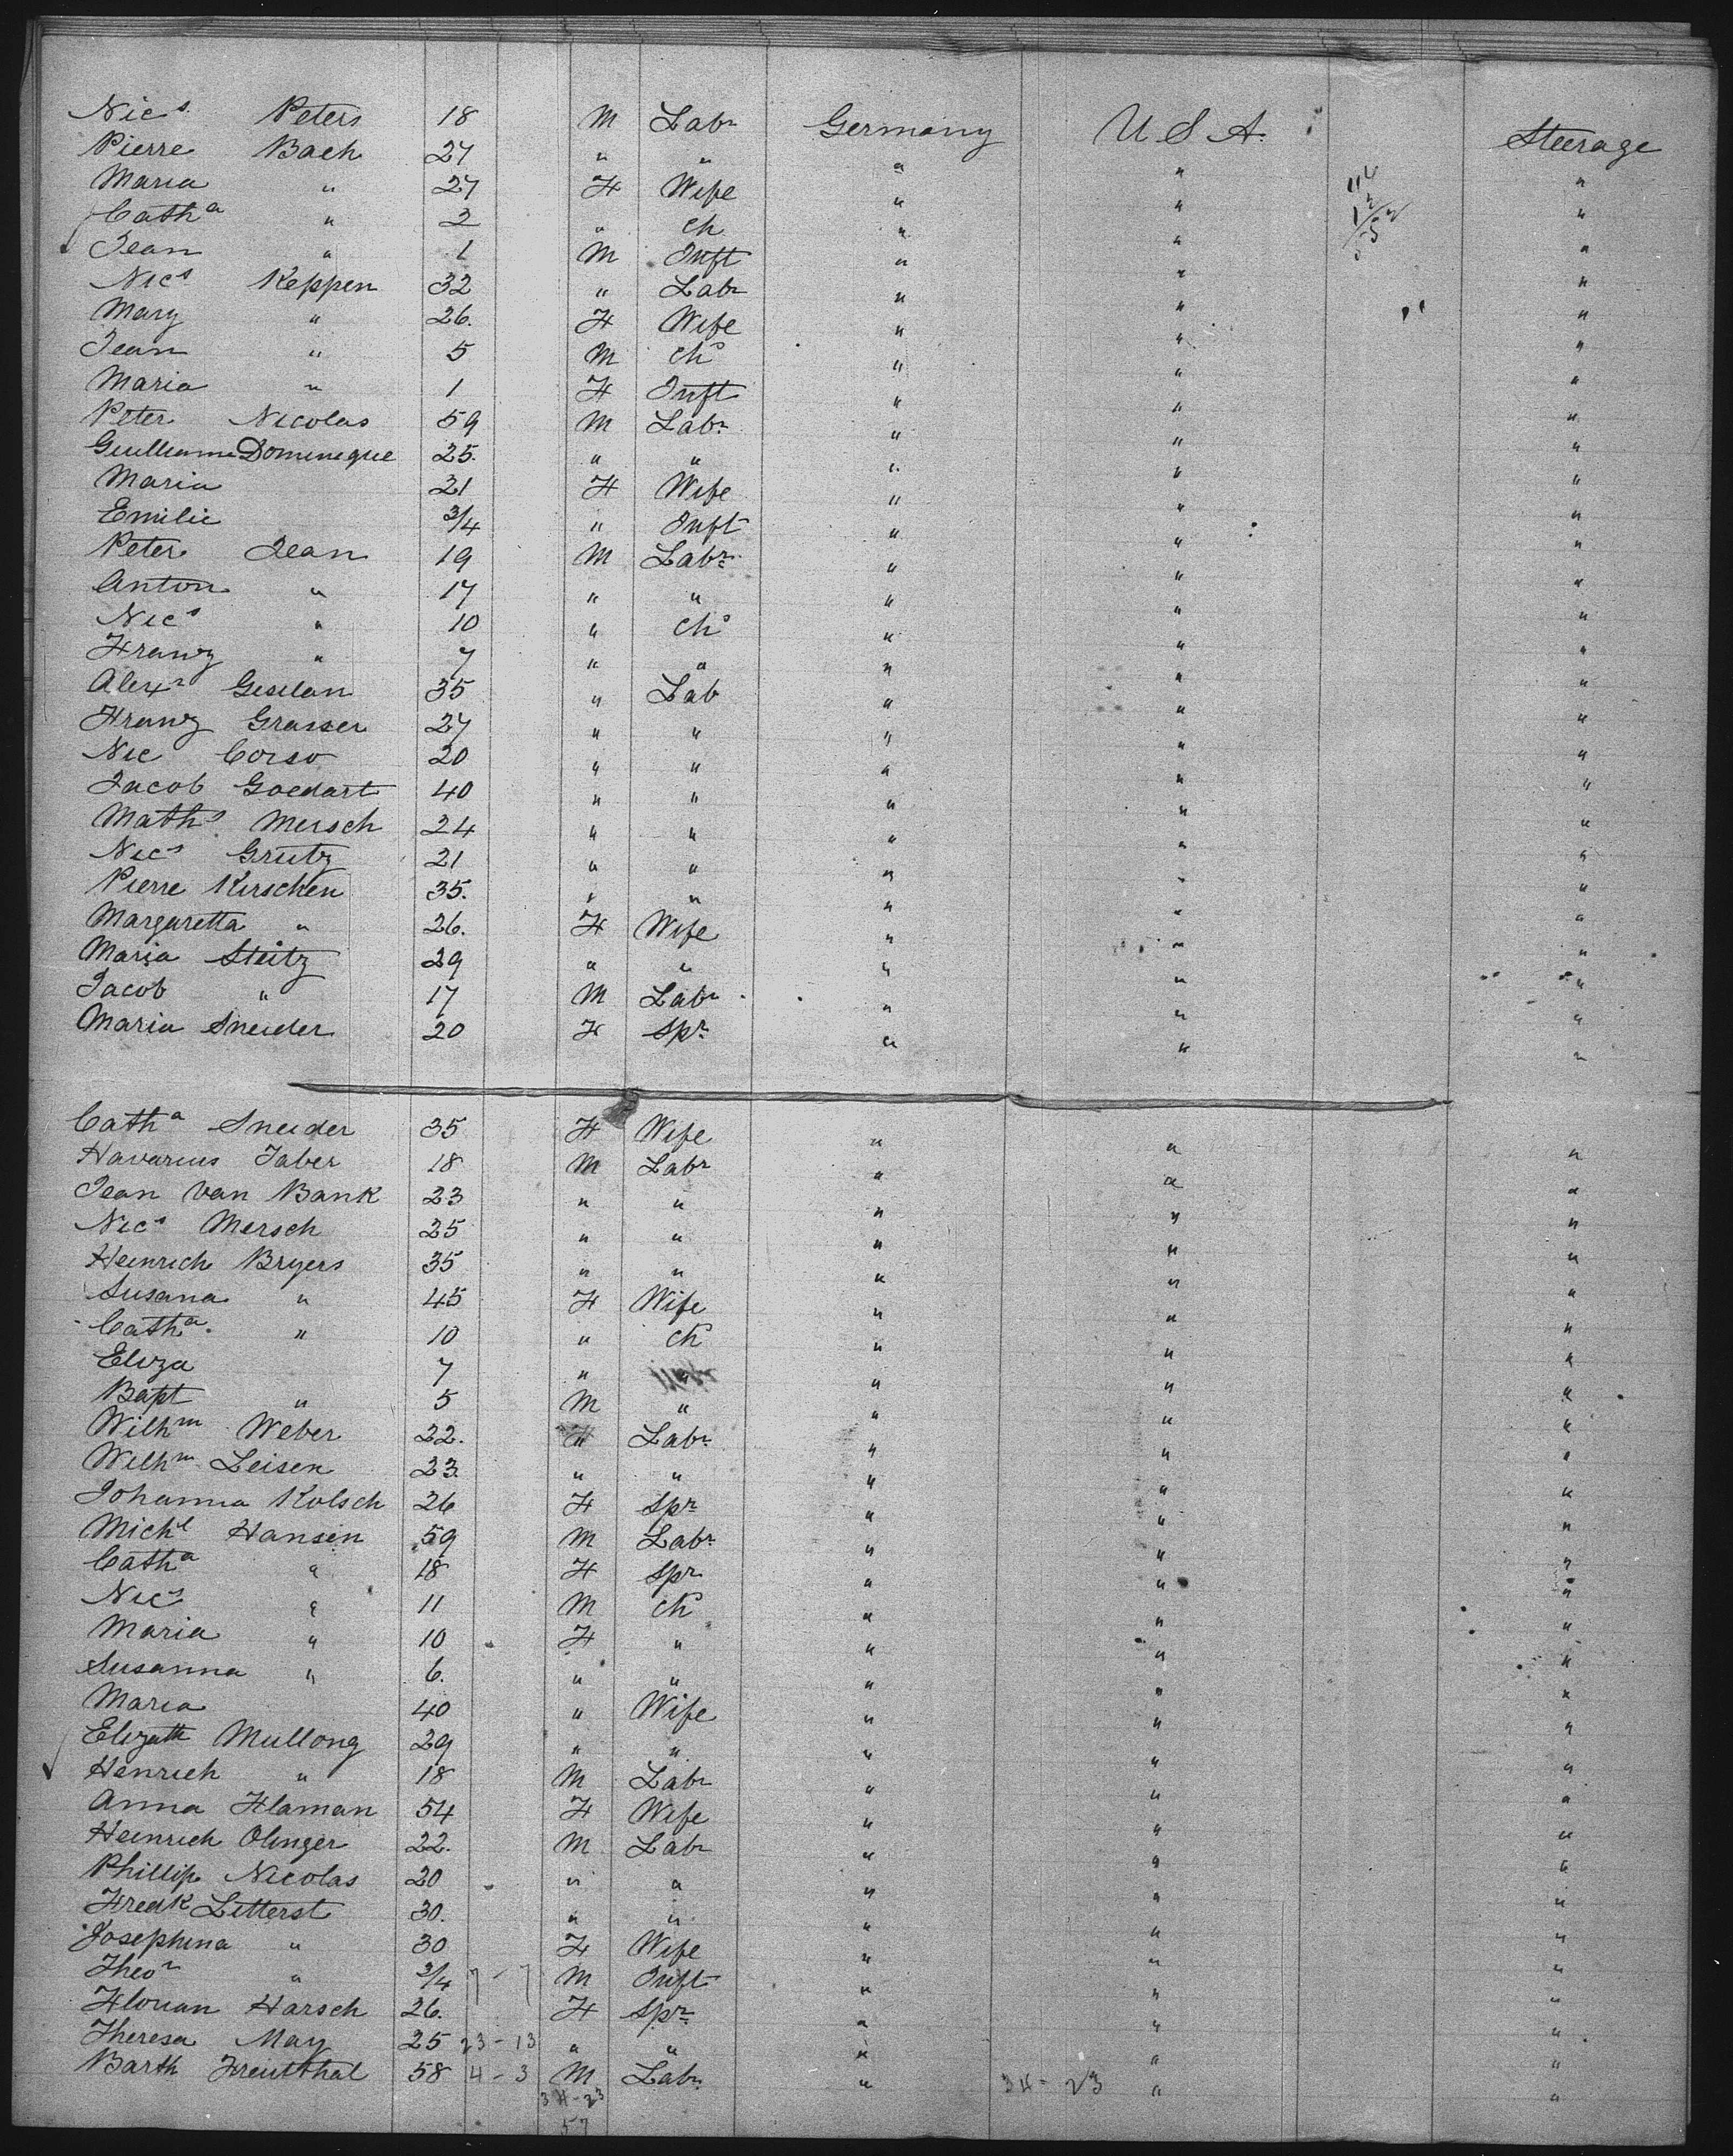 Nics Peters 18 M Labr Germany U S A. Steerage
Pierre Bach 27 " " " " "
Maria " 27 F Wife " " "
Catha " 2 " ch " " "
Jean " 1 M Inft " " "
Nics Keppen 32 " Labr " " "
Mary " 26. F Wife " " "
Jean " 5 M chd " " "
Maria " 1 F Inft " " "
Peter Nicolas 59 M Labr " " "
Guilleaume Domineque 25. " " " " "
Maria 21 F Wife " " "
Emilie 3/4 " Inft " " "
Peter Jean 19 M Labr " " "
Anton " 17 " " " " "
Nics " 10 " chd " " "
Franz " 7 " " " " "
Alexr Geselan 35 " Lab " " "
Franz Grasser 27 " " " " "
Nic Corso 20 " " " " "
Jacob Goedart 40 " " " " "
Maths Mersch 24 " " " " "
Nics Grutz 21 " " " " "
Pierre Kirschen 35. " " " " "
Margaretta " 26. F Wife " " "
Maria Steitz 29 " " " " "
Jacob " 17 M Labr " " "
Maria Sneider 20 F Spr " " "
Catha Sneider 35 F Wife " " "
Havarius Faber 18 M Labr " " "
Jean Van Bank 23 " " " " "
Nics Mersch 25 " " " " "
Heinrich Bryers 35 " " " " "
Susana " 45 F Wife " " "
Catha " 10 " chd " " "
Eliza 7 " " " " "
Bapt " 5 M " " " "
Wilhm Weber 22. " Labr " " "
Wilhm Leisen 23. " " " " "
Johanna Kolsch 26 F Spr " " "
Michl Hansen 59 M Labr " " "
Catha " 18 F Spr " " "
Nics " 11 M chd " " "
Maria " 10 F " " " "
Susanna " 6. " " " " "
Maria 40 " Wife " " "
Elizath Mullong 29 " " " " "
Henrich " 18 M Labr " " "
Anna Flaman 54 F Wife " " "
Heinrich Olinger 22. M Labr " " "
Phillip Nicolas 20 " " " " "
Fredk Letterst 30. " " " " "
Josephina " 30 F Wife " " "
Theor " 3/4 7 - 7 M Inft " " "
Florian Harsch 26. F Spr " " "
Theresa May 25 23 - 13 " " " " "
Barth Freutthal 58 4 - 3 M Labr " 34 - 23 " "
34 - 23
57